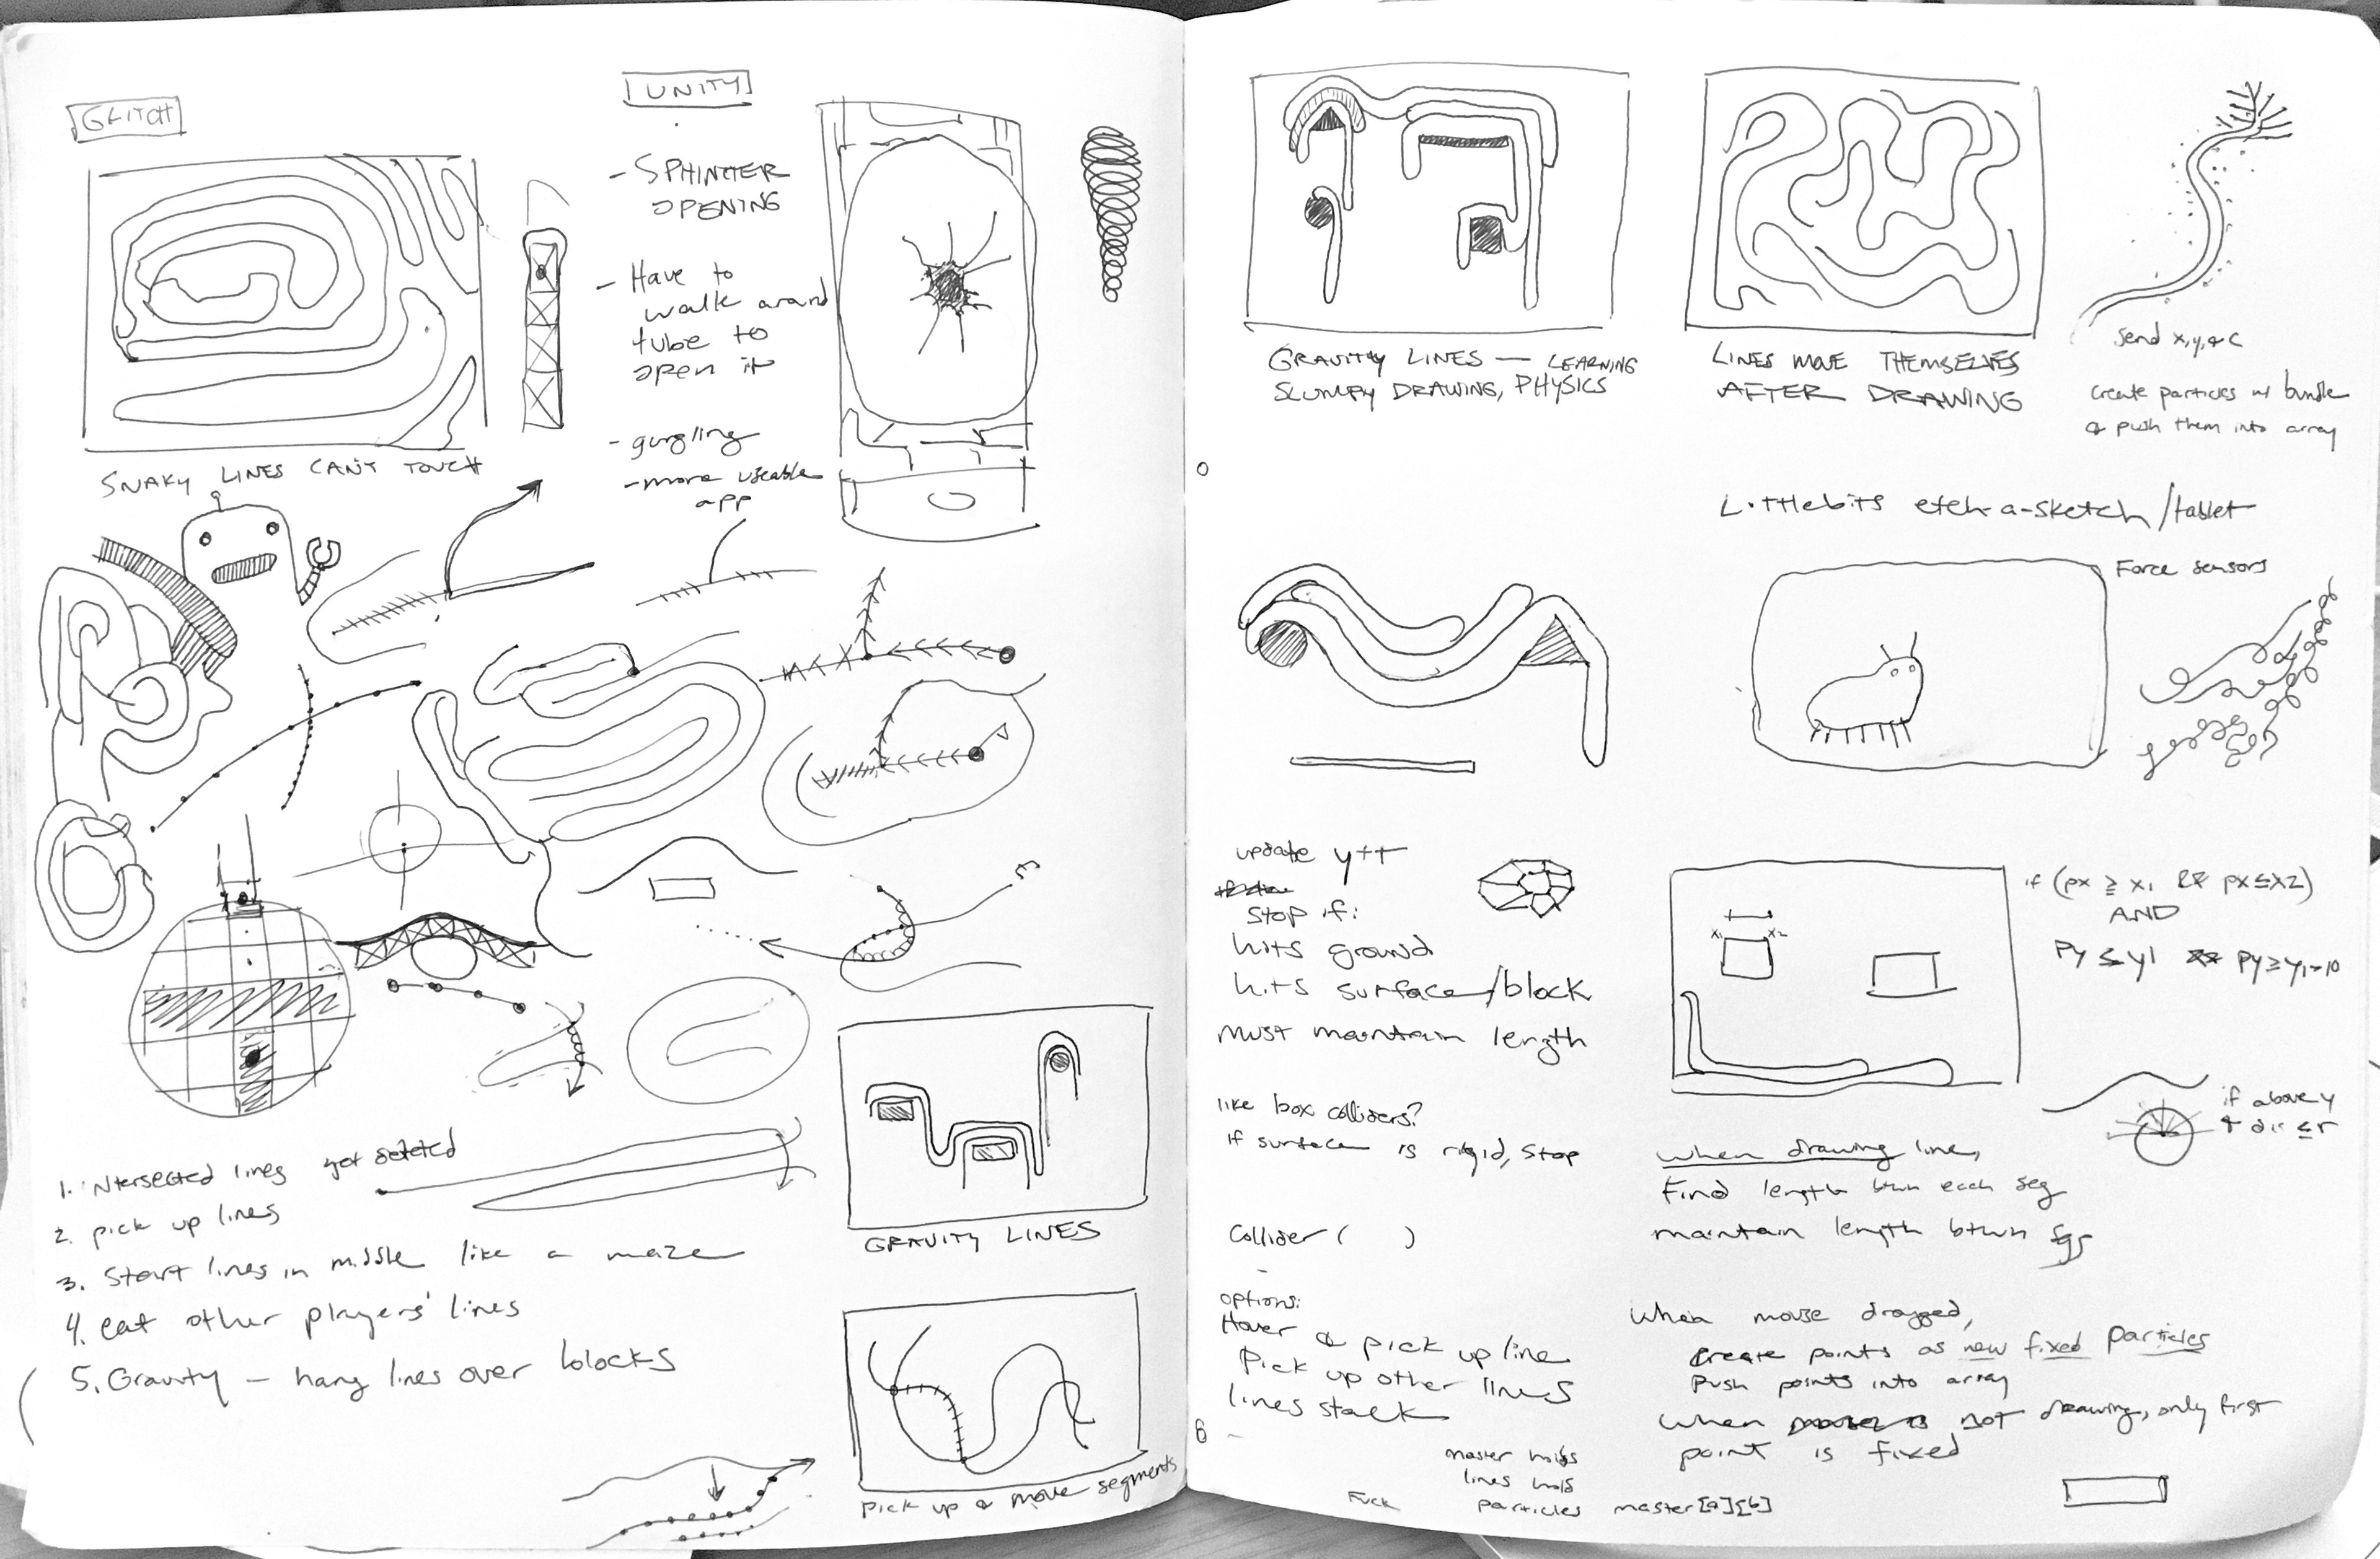 GLITCH
UNITY
- SPHINCTER
OPENING
- Have to
walk around
tube to
open it
- gurgling
- more useable
app
SNAKY LINES CAN'T TOUCH
1. intersected lines get deleted
2. pick up lines
3. Start lines in middle like a maze
4. eat other players' lines
5. Gravity – hang lines over blocks
GRAVITY LINES
Pick up & move segments
GRAVITY LINES — LEARNING
SLUMPY DRAWING, PHYSICS
LINES MOVE THEMSELVES
AFTER DRAWING
send x, y, & c
create particles w/ bundle
& push them into array
Littlebits etch-a-sketch/tablet
Force sensors
update y++
Stop if:
hits ground
hits surface/block
must maintain length
like box colliders?
if surface is rigid, stop
Collider ( )
options:
Hover & pick up line
Pick up other lines
lines stack
x1 x2
if (px ≥ x1 && px ≤ x2)
AND
py ≤ y1 && py ≥ y1-10
if above y
& dis ≤ r
when drawing line,
Find length btwn each seg
maintain length btwn sgs
When mouse dragged,
create points as new fixed particles
Push points into array
when not drawing, only first
point is fixed
master holds
lines hold
particles master[a][b]
Fuck